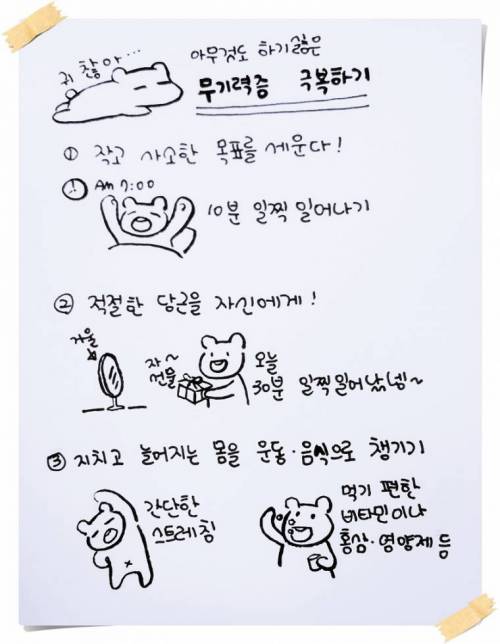 귀찮아...
아무것도 하기싫은
무기력증 극복하기
① 작고 사소한 목표를 세운다!
! AM 7:00
10분 일찍 일어나기
② 적절한 당근을 자신에게!
거울
자~
선물
오늘
30분 일찍일어났넹~
③ 지치고 늘어지는 몸을 운동·음식으로 챙기기
간단한
스트레칭
먹기 편한
비타민이나
홍삼·영양제 등